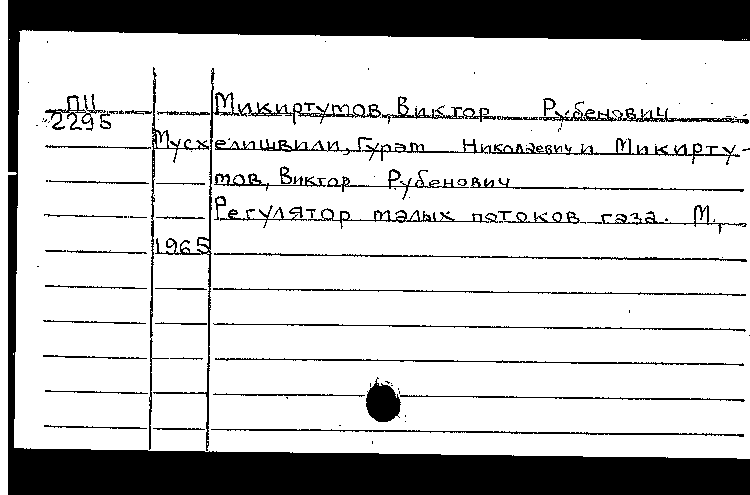 П11
2295
Микиртумов, Виктор Рубенович
Мусхелишвили, Гурам Николаевич и Микирту-
мов, Виктор Рубенович
Регулятор малых потоков газа. М.,
1965